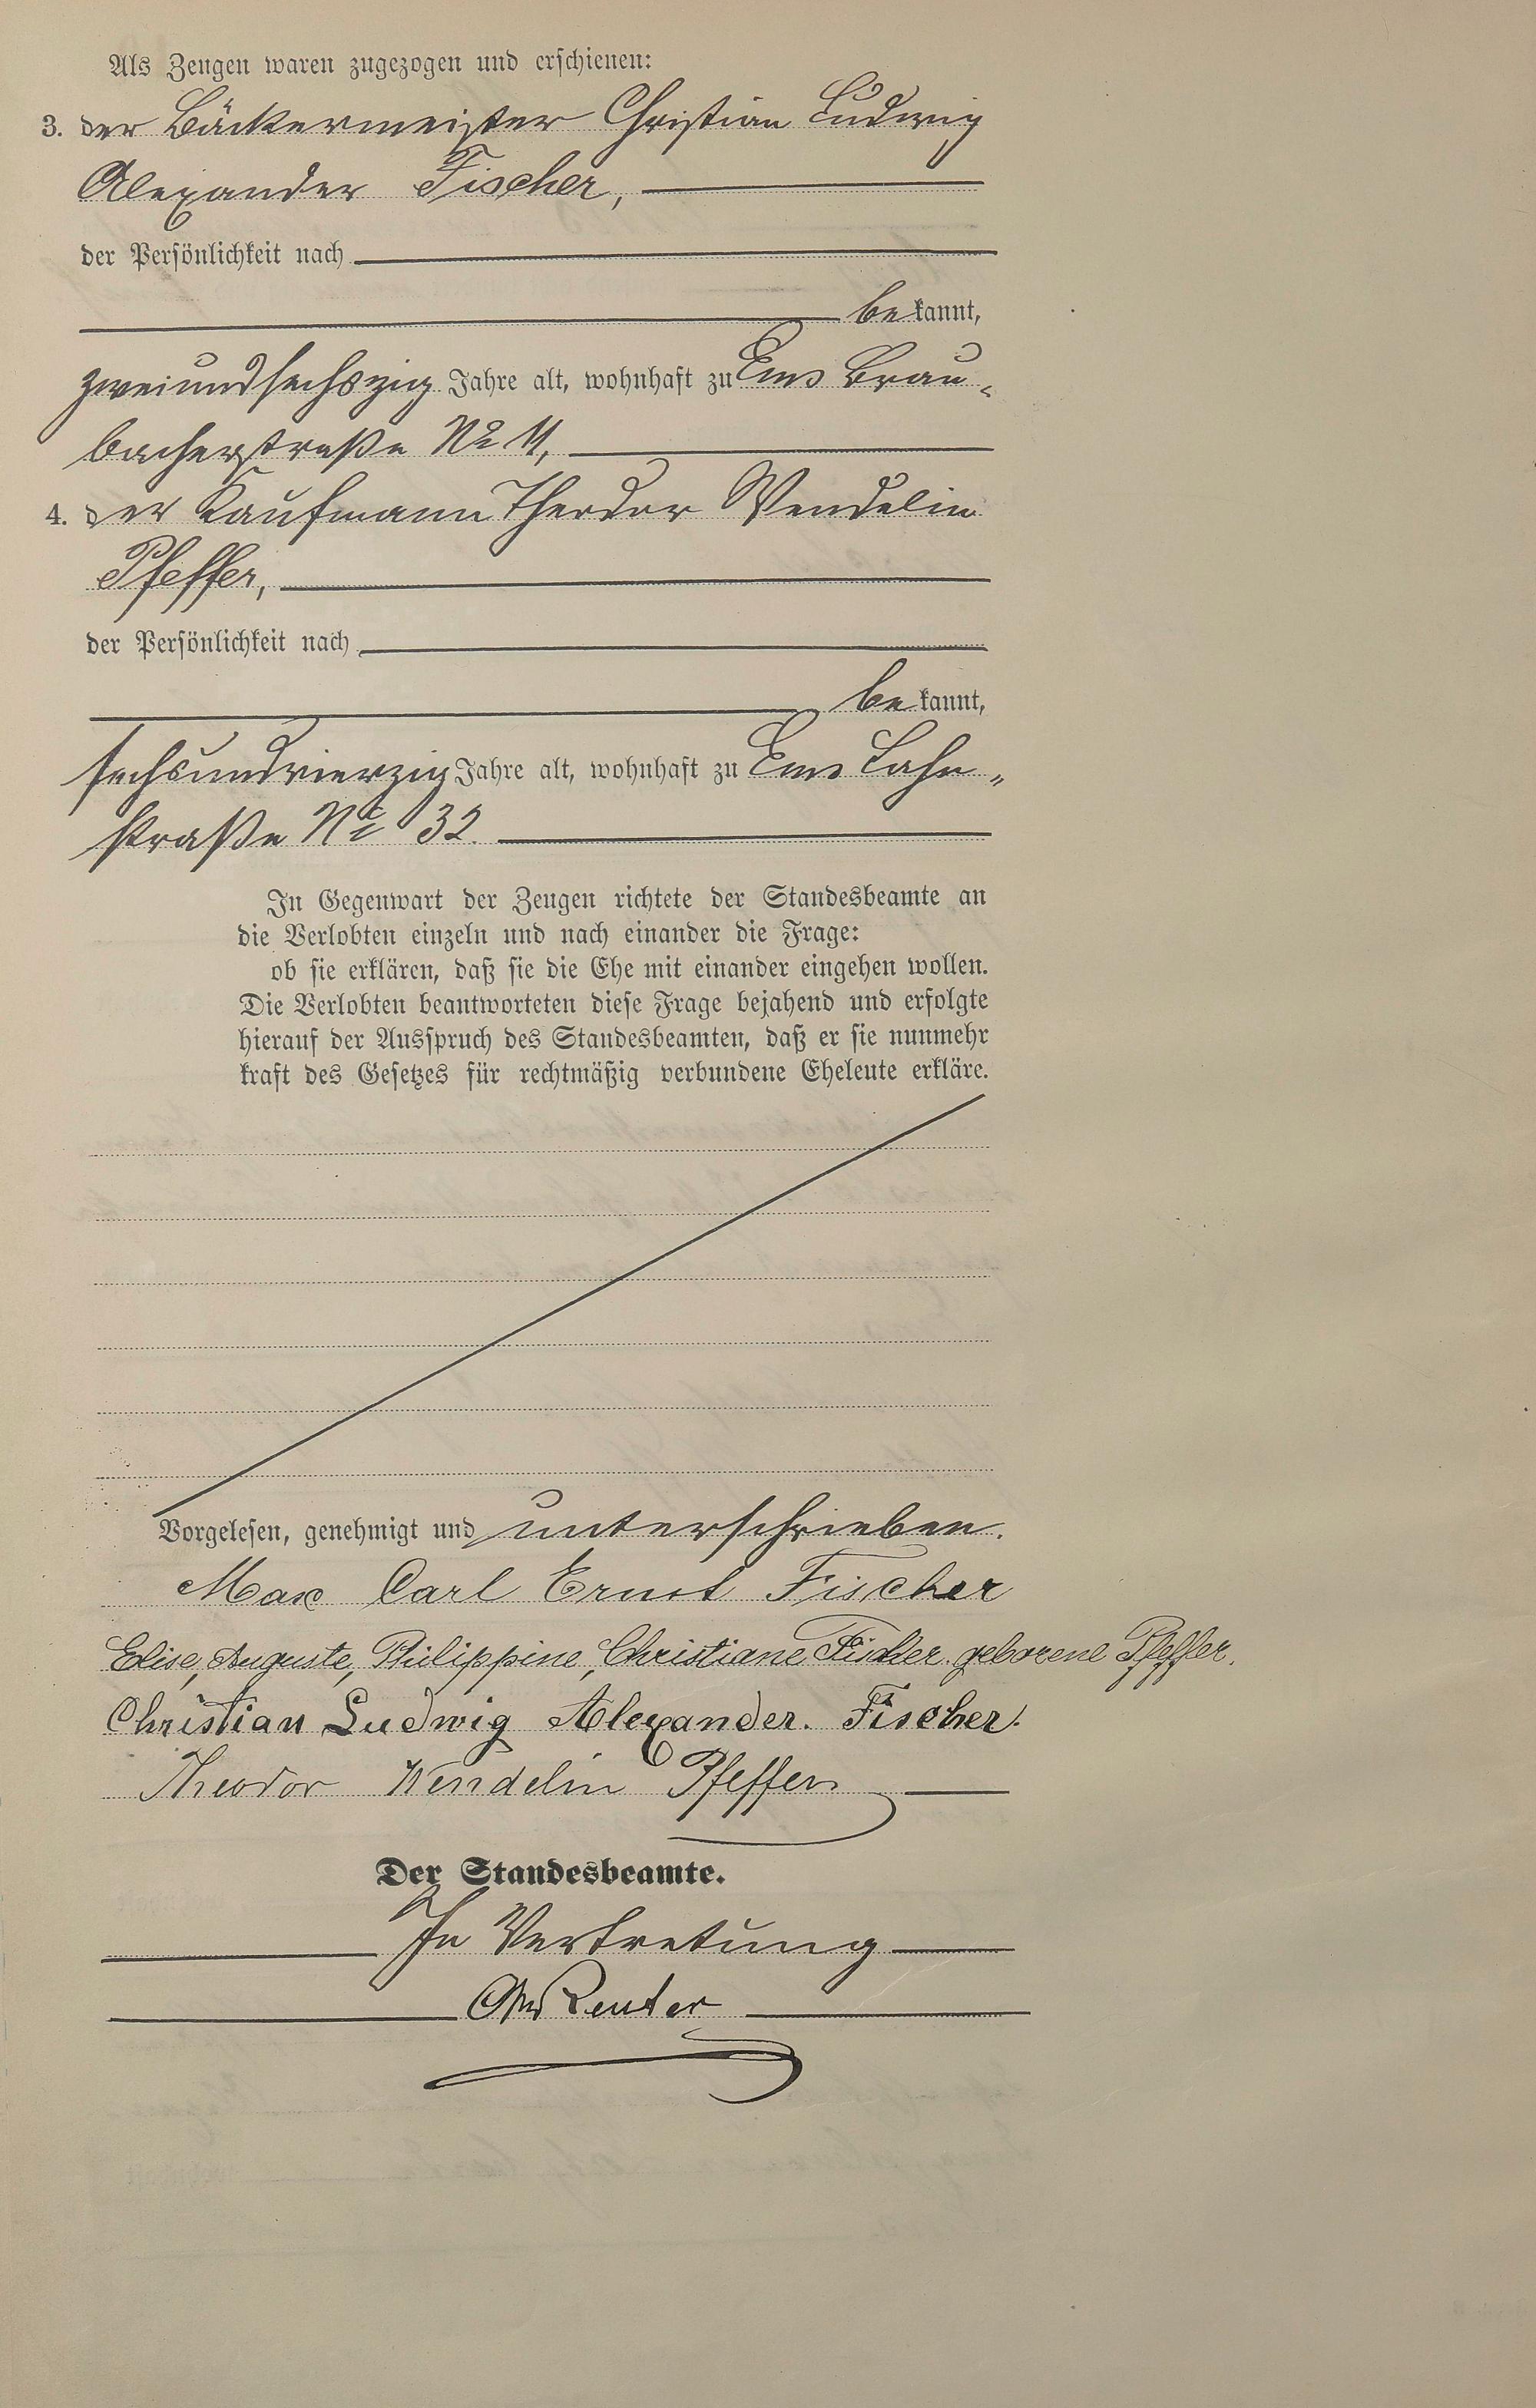 Als Zeugen waren zugezogen und erschienen:
3. der Bäckermeister Christian Ludwig
Alexander Fischer,
der Persönlichkeit nach
bekannt,
zweiundsechszig Jahre alt, wohnhaft zu Ems Brau-
bacherstraße No 11,
4. der Kaufmann Theodor Wendelin
Pfeffer,
der Persönlichkeit nach
bekannt,
sechsundvierzig Jahre alt, wohnhaft zu Ems Lahn-
straße No 32.
In Gegenwart der Zeugen richtete der Standesbeamte an
die Verlobten einzeln und nach einander die Frage:
ob sie erklären, daß sie die Ehe mit einander eingehen wollen.
Die Verlobten beantworteten diese Frage bejahend und erfolgte
hierauf der Ausspruch des Standesbeamten, daß er sie nunmehr
kraft des Gesetzes für rechtmäßig verbundene Eheleute erkläre.
Vorgelesen, genehmigt und unterschrieben.
Max Carl Ernst Fischer
Elise, Auguste, Philippine, Christiane Fischer geborene Pfeffer.
Christian Ludwig Alexander. Fischer.
Theodor Wendelin Pfeffer
Der Standesbeamte.
In Vertretung
Reuter